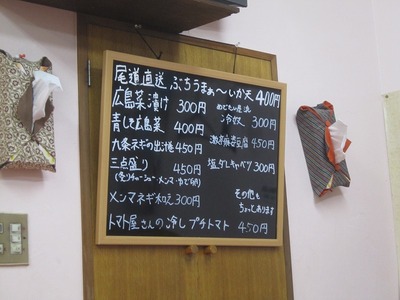 尾道直送 ぶちうまぁ〜いか天 400円
広島菜漬け 300円
青じそ広島菜 400円
九条ネギのお出汁 450円
三点盛り 450円
(炙りチャーシュー・メンマ・ゆで卵)
メンマネギ和え 300円
冷奴 300円
激辛麻婆豆腐 450円
塩ダレキャベツ 300円
その他も
ちょっとあります
トマト屋さんの冷しプチトマト 450円